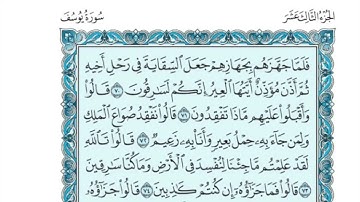 الجزء الثالث عشر سورة يوسف
فَلَمَّا جَهَّزَهُم بِجَهَازِهِمْ جَعَلَ السِّقَايَةَ فِي رَحْلِ أَخِيهِ
ثُمَّ أَذَّنَ مُؤَذِّنٌ أَيَّتُهَا الْعِيرُ إِنَّكُمْ لَسَارِقُونَ ٧٠ قَالُوا
وَأَقْبَلُوا عَلَيْهِم مَّاذَا تَفْقِدُونَ ٧١ قَالُوا نَفْقِدُ صُوَاعَ الْمَلِكِ
وَلِمَن جَاءَ بِهِ حِمْلُ بَعِيرٍ وَأَنَا بِهِ زَعِيمٌ ٧٢ قَالُوا تَاللَّهِ
لَقَدْ عَلِمْتُم مَّا جِئْنَا لِنُفْسِدَ فِي الْأَرْضِ وَمَا كُنَّا سَارِقِينَ
٧٣ قَالُوا فَمَا جَزَاؤُهُ إِن كُنتُمْ كَاذِبِينَ ٧٤ قَالُوا جَزَاؤُهُ